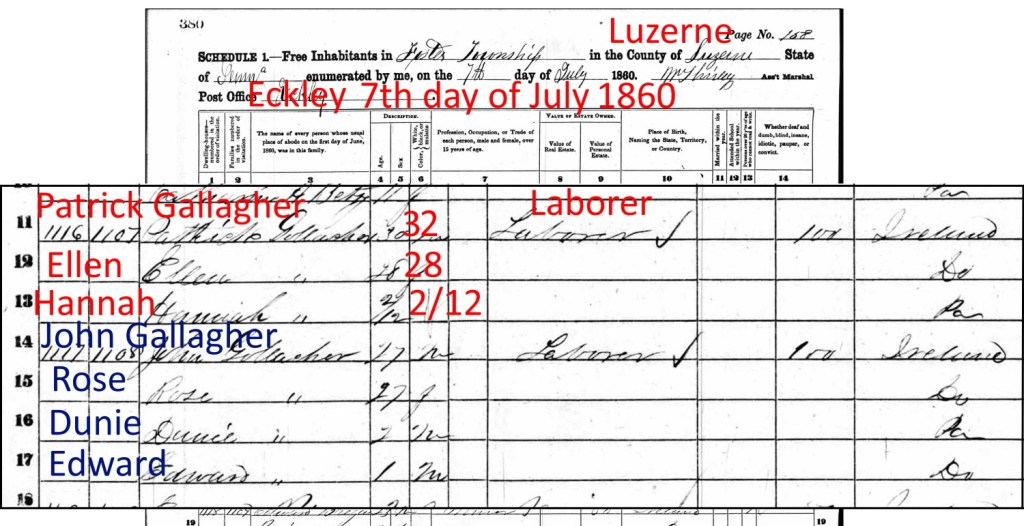 380
Luzerne
Page No. 158
SCHEDULE 1.—Free Inhabitants in Foster Township in the County of Luzerne State
of Penna enumerated by me, on the 7th day of July 1860. Ass't Marshal
Post Office Eckley
Eckley 7th day of July 1860
DESCRIPTION. VALUE OF ESTATE OWNED.
Dwelling-houses— numbered in the order of visitation.
Families numbered in the order of visitation.
The name of every person whose usual place of abode on the first day of June, 1860, was in this family.
Age.
Sex
Color, White, black, or mulatto
Profession, Occupation, or Trade of each person, male and female, over 15 years of age.
Value of Real Estate.
Value of Personal Estate.
Place of Birth, Naming the State, Territory, or Country.
Married within the year.
Attended School within the year.
Whether deaf and dumb, blind, insane, idiotic, pauper, or convict.
1 2 3 4 5 6 7 8 9 10 11 12 13 14
Pa
Patrick Gallagher 32 Laborer
11 1116 1107 Patrick Gollacher 32 m Laborer 100 Ireland
Ellen 28
12 Ellen " 28 f Do
Hannah 2/12
13 Hannah " 2/12 Pa
John Gallagher
14 1117 1108 John Gollacher 27 m Laborer 100 Ireland
Rose
15 Rose " 27 f Do
Dunie
16 Dunie " 2 m Pa
Edward
17 Edward " 1 m Do
18
19 19